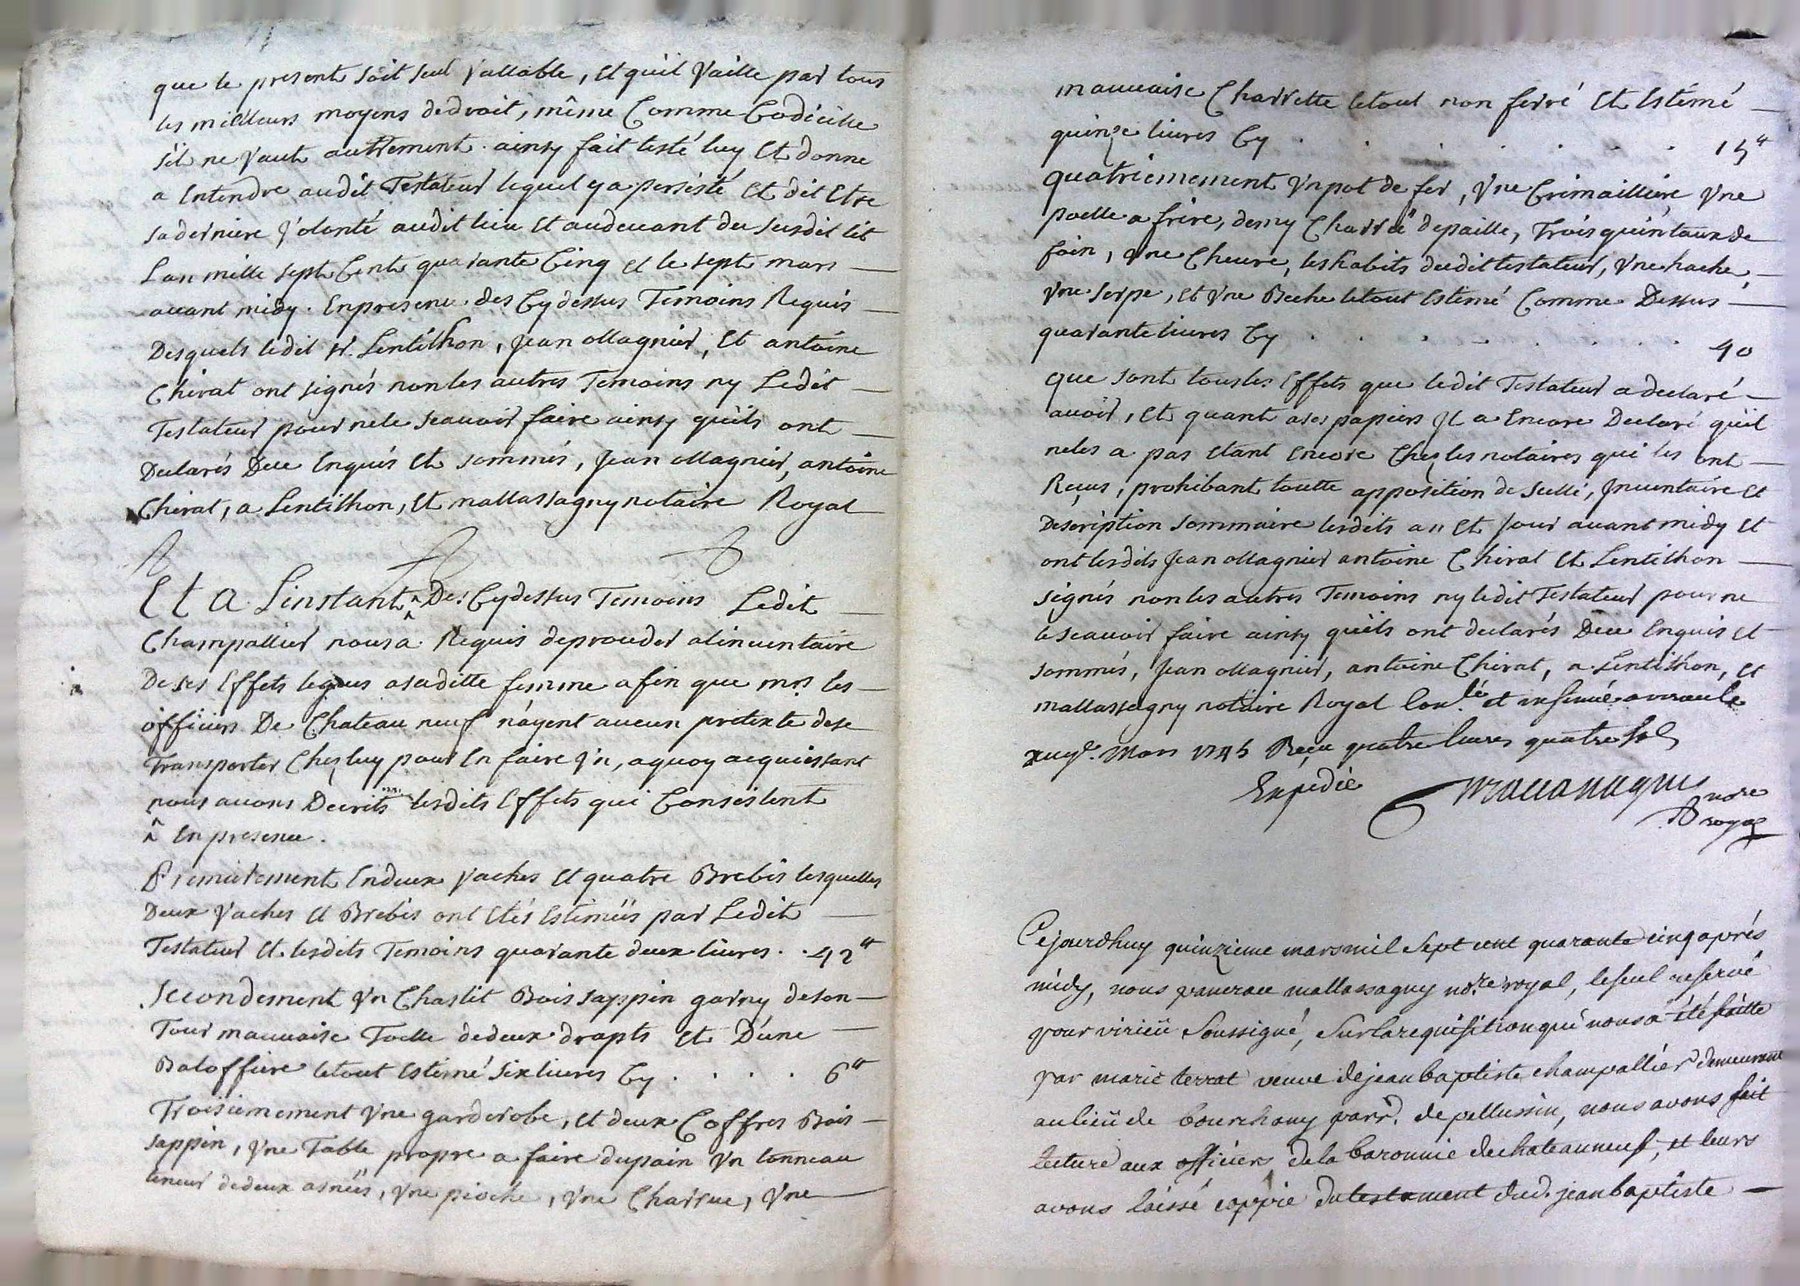 que le present soit seul vallable, et quil vaille par tous
les meilleurs moyens de droit, même Comme Codicille
s'il ne vaut autrement. ainsy fait testé luy et donné
a Entendre audit Testateur lequel y a persisté et dit Etre
sa derniere volonté audit lieu et audevant du susdit lit
Lan mille sept Cent quarante Cinq et le sept mars
avant midy. En presence des Cydessus Temoins Requis
Desquels ledit Sr. Lentilhon, Jean Magnier, et antoine
Chirat ont signés non les autres Temoins ny Ledit
Testateur pour ne le scavoir faire ainsy quils ont
Declarés Due Enquis et sommés, Jean Magnier, antoine
Chirat, a Lentilhon, et mallassagny notaire Royal
Et a Linstant ^ Des Cydessus Temoins Ledit
Champallier nous a Requis deproceder alinventaire
De ses Effets legues a saditte femme afin que mrs les
officiers De Chateau neuf n'ayent aucun pretexte dese
Transporter Chez luy pour En faire vn, aquoy acquiessant
nous avons Decrits lesdits Effets qui Consistent
^ En presence.
Premierement En deux vaches et quatre Brebis lesquelles
Deux vaches et Brebis ont Etés Estimées par Ledit
Testateur et lesdits Temoins quarante deux livres . . 42tt
Secondement vn Chaslit Bois sappin garny de son
Tour mauvaise Toelle de deux drapts et D'une
Baloffiere letout Estimé six livres Cy . . . . 6tt
Troisiemement vne garderobe, et deux Coffres Bois
sappin, vne Table propre a faire du pain vn tonneau
teneur de deux asnées, vne pioche, vne Charrue, vne
mauvaise Charrette letout non ferré et Estimé
quinze livres Cy . . . . . . 15tt
quatriemement vn pot de fer, vne Crimailliere, vne
poelle a frire, demy Charrée depaille, Trois quintaux de
foin, vne Cheure, les habits dudit testateur, vne hache
vne serpe, et vne Beche letout Estimé Comme Dessus
quarante livres Cy . . . . . . . 40
que sont tous les Effets que ledit Testateur a declaré
avoir, et quant a ses papiers Jl a Encore Declaré quil
neles a pas etant Encore Chez les notaires qui les ont
Reçus, prohibant toutte apposition de scellé, Jnventaire et
Description sommaire lesdits an et Jour avant midy et
ont lesdits Jean Magnier antoine Chirat et Lentilhon
signés non les autres Temoins ny ledit Testateur pour ne
le scavoir faire ainsy quils ont declarés Due Enquis et
sommés, Jean Magnier, antoine Chirat, a. Lentilhon, et
mallassagny notaire Royal Con.lé et insinué a
mars 1745 Reçu quatre livres quatre sols
Expedié
nore
royal
Cejourdhuy quinzieme mars mil sept cent quarante cinq aprés
midy, nous pancrace mallassagny nore royal, le seul reservé
pour virieü soussigné, sur la requisition qui nous a été faitte
par marie terrat veuve de jean baptiste champallier demeurante
au lieü de bourchany parr. de pellussin, nous avons fait
lecture aux officiers de la baronnie de chateauneuf, et leurs
avons laissé coppie du testament dud. jean baptiste